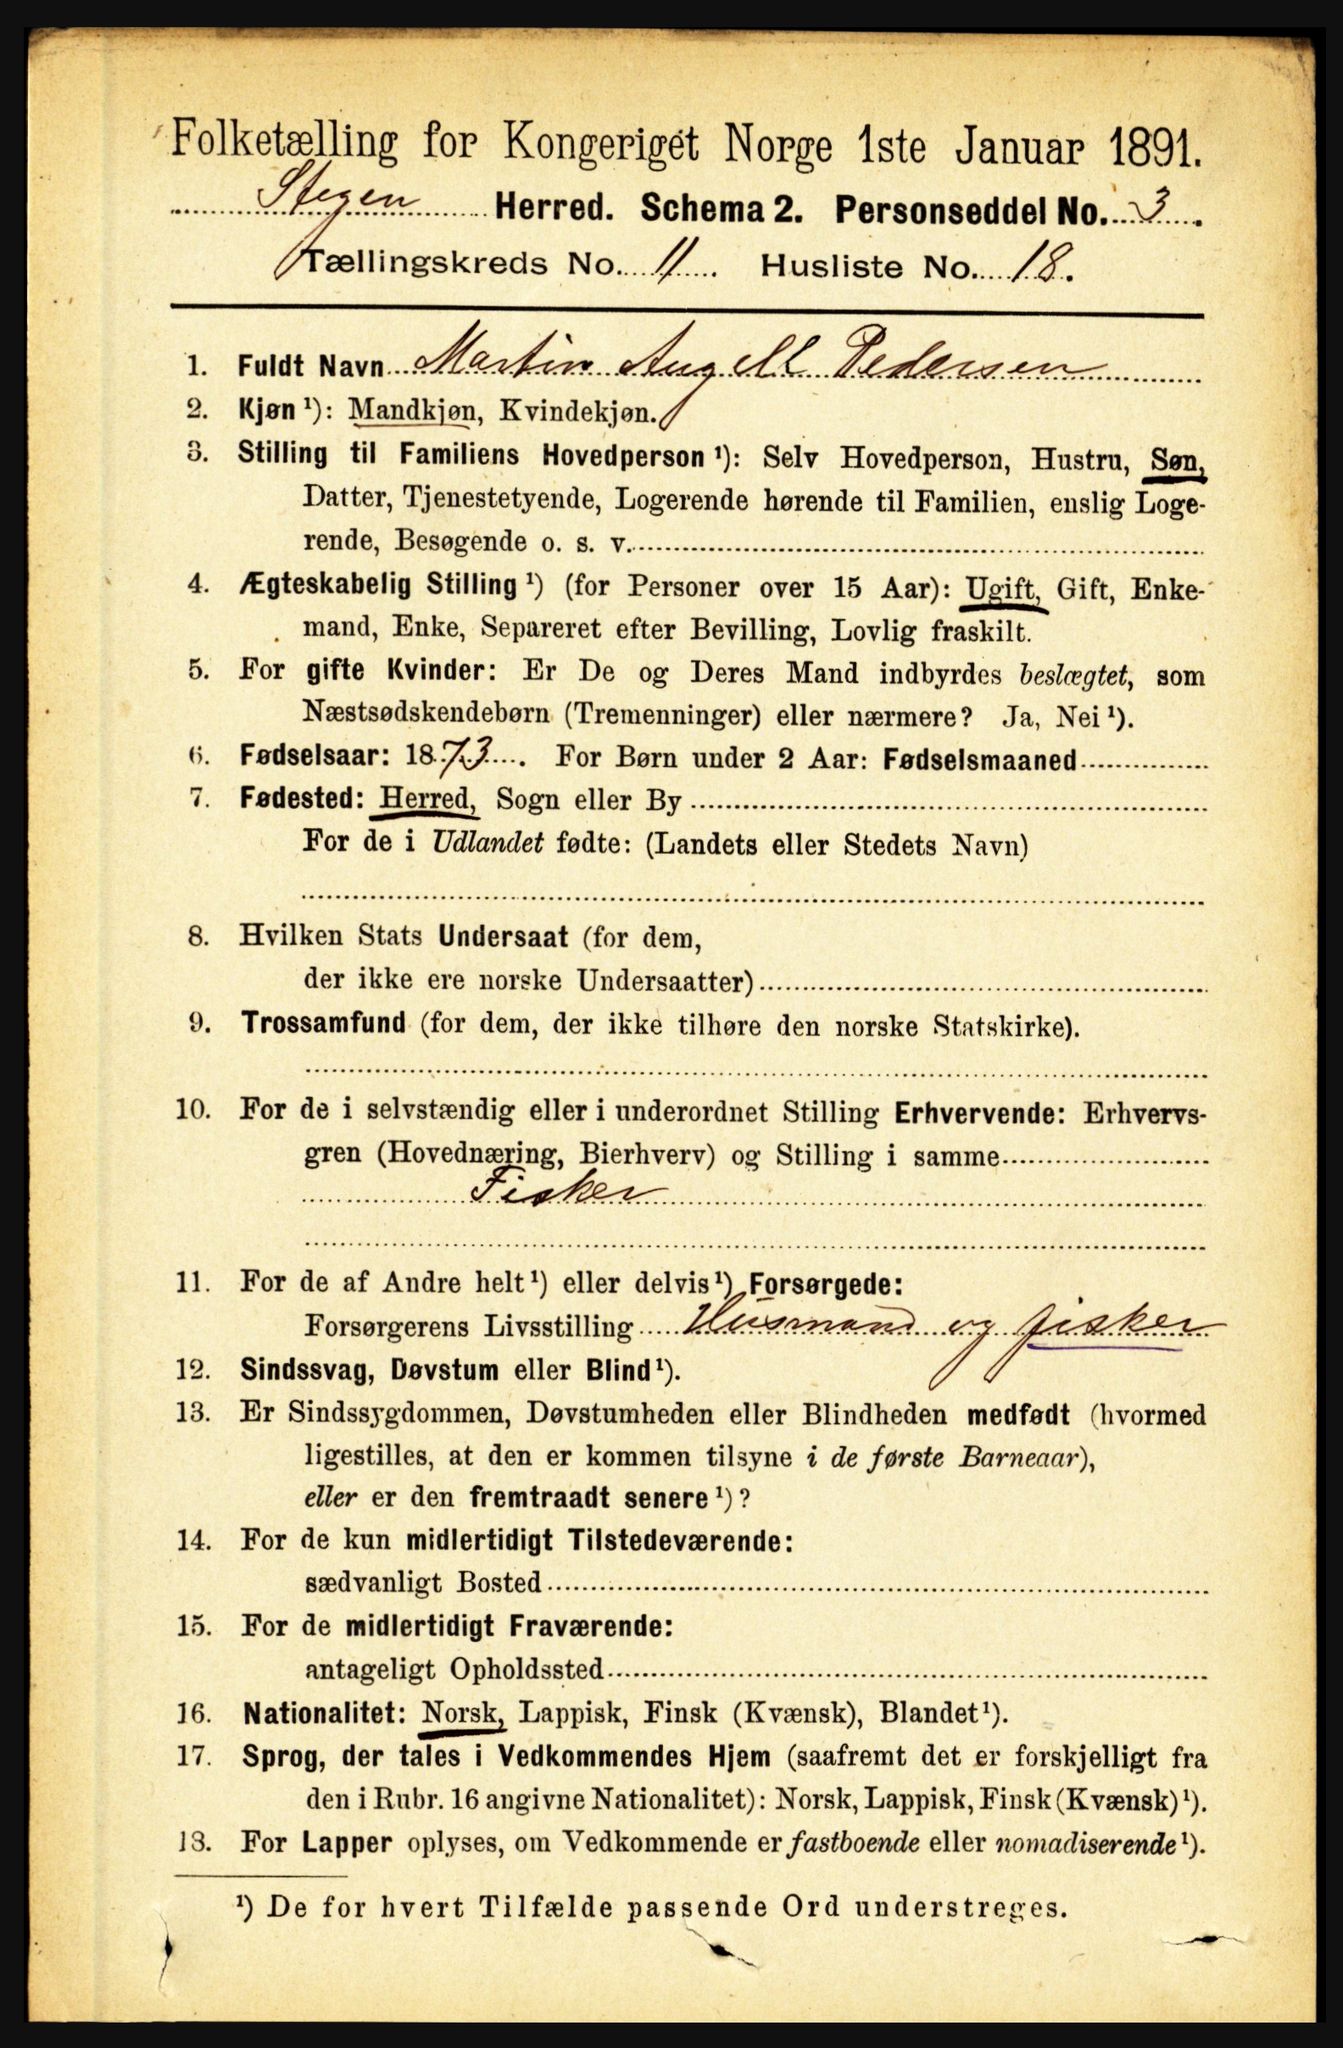 Folketælling for Kongeriget Norge 1ste Januar 1891.
Stegen Herred. Schema 2. Personseddel No. 3.
Tællingskreds No. 11. Husliste No. 18.
1. Fuldt Navn Martin Angell Pedersen
2. Kjøn ¹): Mandkjøn, Kvindekjøn.
3. Stilling til Familiens Hovedperson ¹): Selv Hovedperson, Hustru, Søn,
Datter, Tjenestetyende, Logerende hørende til Familien, enslig Loge-
rende, Besøgende o. s. v.
4. Ægteskabelig Stilling ¹) (for Personer over 15 Aar): Ugift, Gift, Enke-
mand, Enke, Separeret efter Bevilling, Lovlig fraskilt.
5. For gifte Kvinder: Er De og Deres Mand indbyrdes beslægtet, som
Næstsødskendebørn (Tremenninger) eller nærmere? Ja, Nei ¹).
6. Fødselsaar: 1873. For Børn under 2 Aar: Fødselsmaaned
7. Fødested: Herred, Sogn eller By
For de i Udlandet fødte: (Landets eller Stedets Navn)
8. Hvilken Stats Undersaat (for dem,
der ikke ere norske Undersaatter)
9. Trossamfund (for dem, der ikke tilhøre den norske Statskirke).
10. For de i selvstændig eller i underordnet Stilling Erhvervende: Erhvervs-
gren (Hovednæring, Bierhverv) og Stilling i samme
Fisker
11. For de af Andre helt ¹) eller delvis ¹) Forsørgede:
Forsørgerens Livsstilling Husmand og fisker
12. Sindssvag, Døvstum eller Blind ¹).
13. Er Sindssygdommen, Døvstumheden eller Blindheden medfødt (hvormed
ligestilles, at den er kommen tilsyne i de første Barneaar),
eller er den fremtraadt senere ¹)?
14. For de kun midlertidigt Tilstedeværende:
sædvanligt Bosted
15. For de midlertidigt Fraværende:
antageligt Opholdssted
16. Nationalitet: Norsk, Lappisk, Finsk (Kvænsk), Blandet ¹).
17. Sprog, der tales i Vedkommendes Hjem (saafremt det er forskjelligt fra
den i Rubr. 16 angivne Nationalitet): Norsk, Lappisk, Finsk (Kvænsk) ¹).
18. For Lapper oplyses, om Vedkommende er fastboende eller nomadiserende ¹).
¹) De for hvert Tilfælde passende Ord understreges.